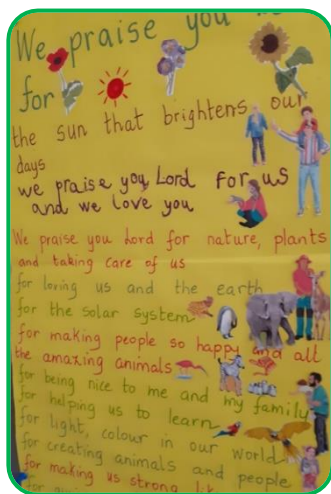 We praise you
for
the sun that brightens our
days
we praise you Lord for us
and we love you
We praise you Lord for nature, plants
and taking care of us
for loving us and the earth
for the solar system
for making people so happy and all
the amazing animals
for being nice to me and my family
for helping us to learn
for light, colour in our world
for creating animals and people
for making us strong
for